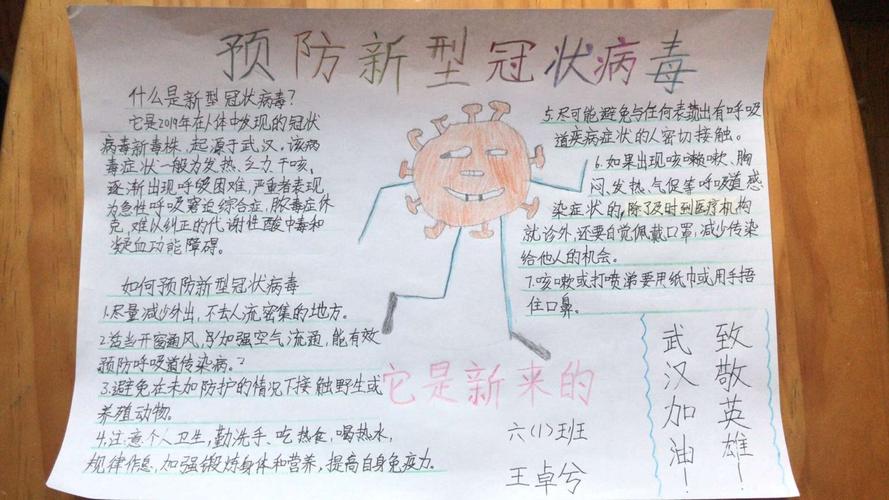 预防新型冠状病毒
什么是新型冠状病毒?
它是2019年在人体中发现的冠状
病毒新毒株,起源于武汉,该病
毒症状一般为发热、乏力、干咳,
逐渐出现呼吸困难,严重者表现
为急性呼吸窘迫综合症,脓毒症休
克,难以纠正的代谢性酸中毒和
凝血功能障碍。
如何预防新型冠状病毒
1.尽量减少外出,不去人流密集的地方。
2.适当开窗通风,加强空气流通,能有效
预防呼吸道传染病。
3.避免在未加防护的情况下接触野生或
养殖动物。
4.注意个人卫生,勤洗手、吃热食,喝热水,
规律作息,加强锻炼身体和营养,提高自身免疫力。
5.尽可能避免与任何表露出有呼吸
道疾病症状的人密切接触。
6.如果出现咳嗽、胸
闷、发热、气促等呼吸道感
染症状的,除了及时到医疗机构
就诊外,还要自觉佩戴口罩,减少传染
给他人的机会。
7.咳嗽或打喷涕要用纸巾或用手捂
住口鼻。
它是新来的
六(1)班
王卓兮
致敬英雄!
武汉加油!